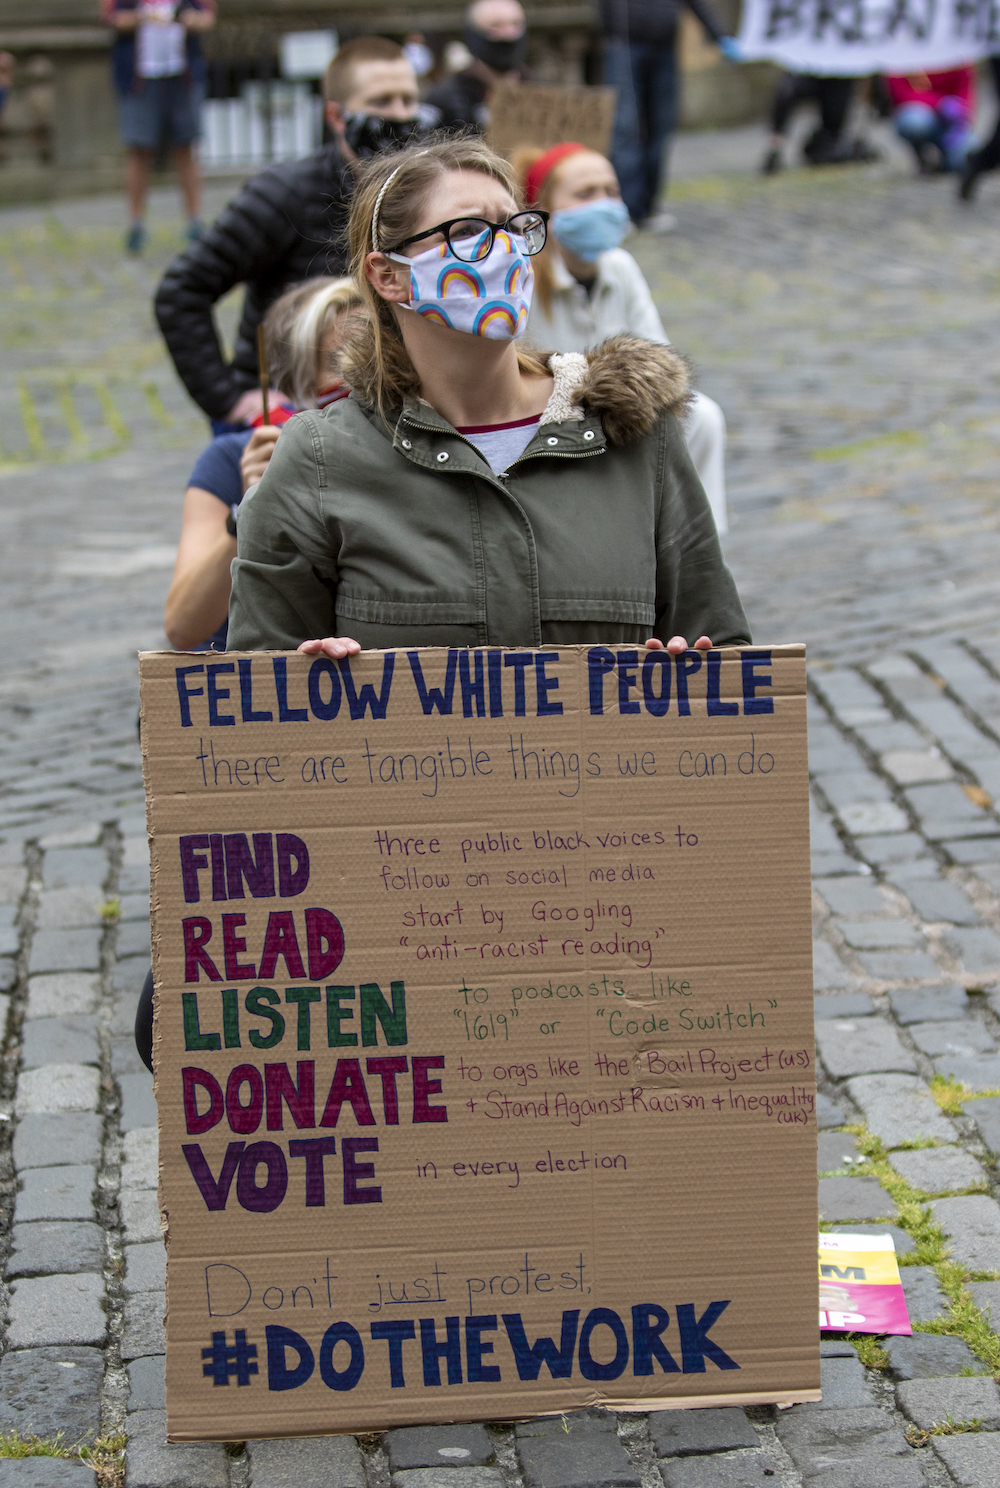 BREATHE
FELLOW WHITE PEOPLE
there are tangible things we can do
FIND three public black voices to
follow on social media
READ start by Googling
"anti-racist reading"
LISTEN to podcasts like
"1619" or "Code Switch"
DONATE to orgs like the Bail Project (US)
+ Stand Against Racism + Inequality
(UK)
VOTE in every election
Don't just protest,
#DOTHEWORK